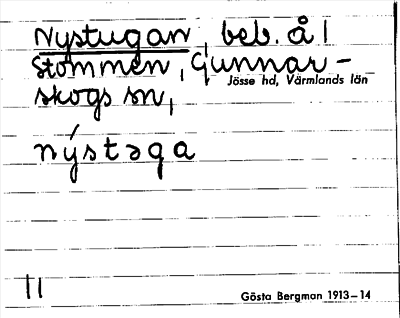 Nystugan, beb. å
Stommen, Gunnar-
Jösse hd, Värmlands län
skogs sn,
nýstəga
11
Gösta Bergman 1913–14